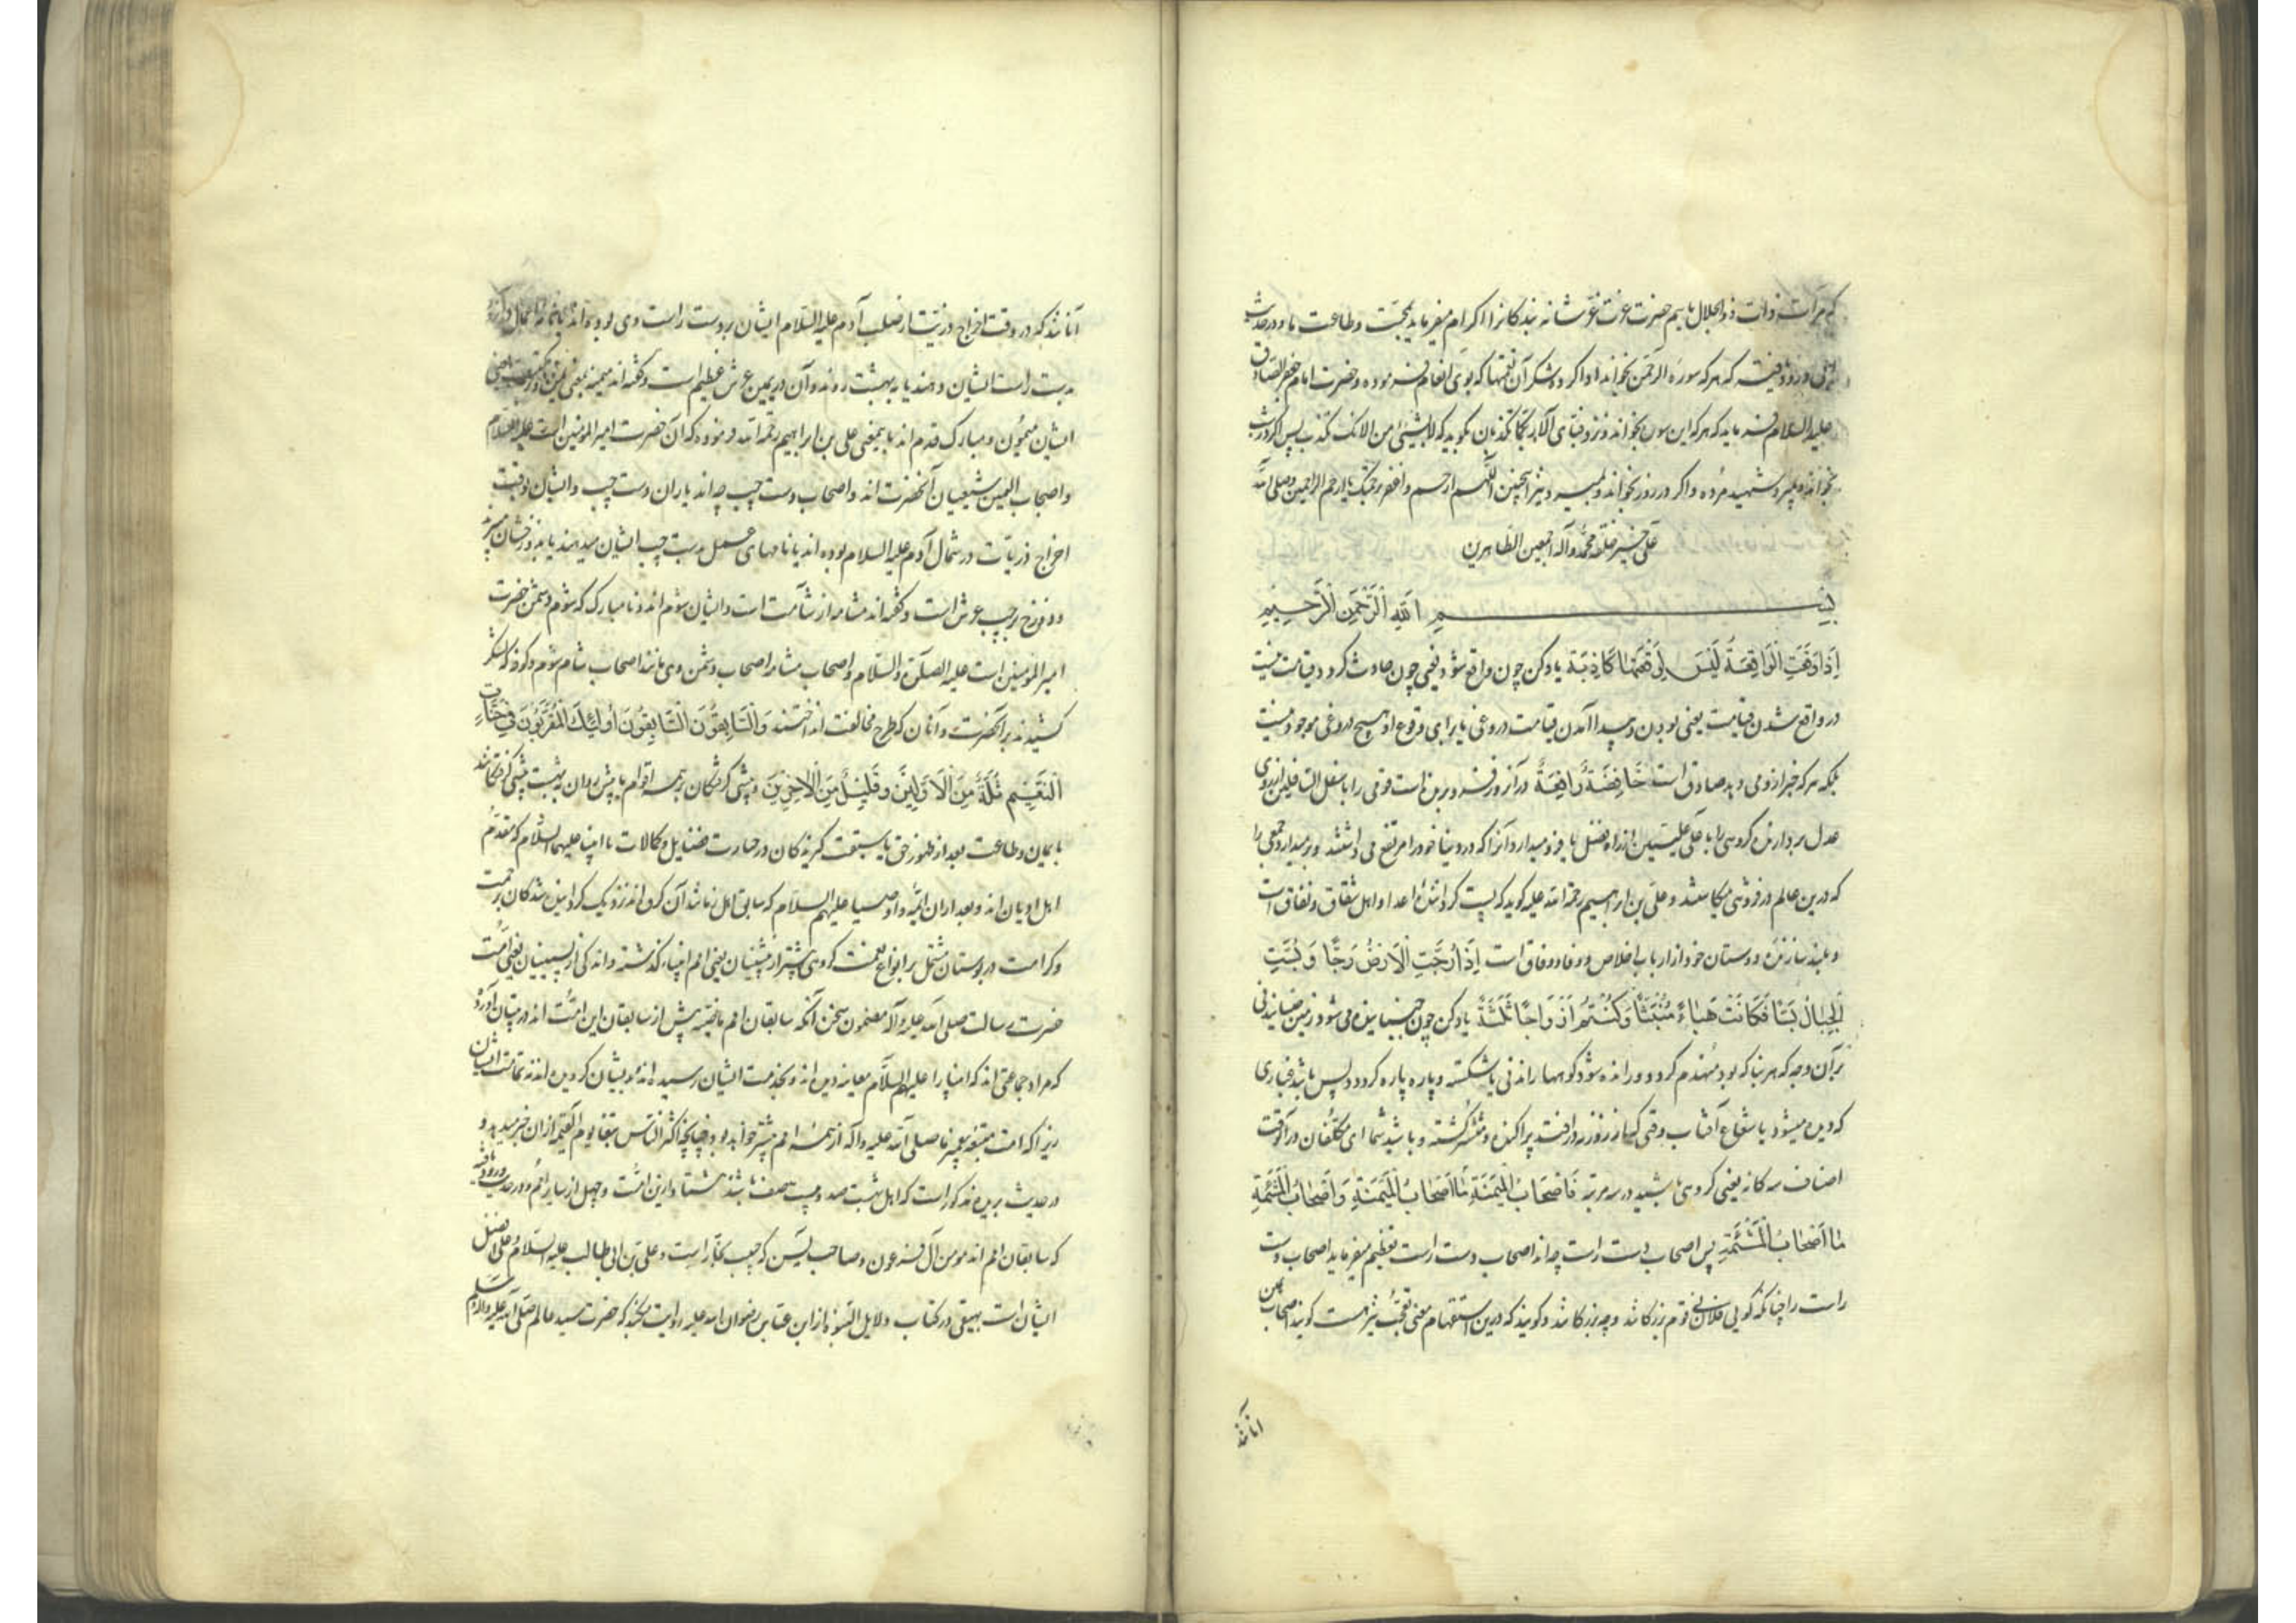 که مراست ذات ذوالجلال ماییم حضرت عزت عز شانه بندکانرا اکرام میفرماید بمحبت و طاعت ما و در حدیث
که هر که سوره الرحمن بخواند ادا کرده شکر آن نعمتها که بوی انعام فرموده و حضرت امام جعفر الصادق
علیه السلام فرماید که هر که این سوره بخواند و نزد فبای آلاء ربکما تکذبان بکوید که لا بشیء من الائک رب اکذب پس اگر در شب
بخواند و بمیرد شهید مرده و اکر در روز بخواند و بمیرد نیز همچنین اللهم ارحم واغفر برحمتک یا ارحم الراحمین وصلی الله
علی خیر خلقه محمد وآله اجمعین الطاهرین
بسم الله الرحمن الرحیم
اِذَا وَقَعَتِ الْوَاقِعَةُ لَیْسَ لِوَقْعَتِهَا کَاذِبَة یاد کن چون واقع شود یعنی چون حادث کردد قیامت نیست
در واقع شدن قیامت یعنی بودن و پیدا آمدن قیامت دروغی یا برای وقوع او هیچ دروغی موجود نیست
بلکه هر که خبر از وی دهد صادق است خَافِضَةٌ رَافِعَةٌ در آن روز فرو برنده است قومی را باسفل السافلین از روی
عدل بردارنده کروهی را باعلی علیین از راه فضل یا فرو میدارد آنرا که در دنیا خود را مرتفع می داشتند و بر میدارد جمعی را
که درین عالم در فروتنی میکاستند و علی بن ابراهیم رحمة الله علیه کوید که پست کرداننده اعدا و اهل شقاق و نفاق است
و بلند سازنده دوستان خود از ارباب اخلاص و وفا و وفاق است اِذَا رُجَّتِ الْاَرْضُ رَجًّا وَبُسَّتِ
الْجِبَالُ بَسًّا فَکَانَتْ هَبَاءً مُنْبَثًّا وَکُنْتُمْ اَزْوَاجًا ثَلٰثَةً یاد کن چون جنبانیده می شود زمین جنبانیدنی
بر آن وجه که هر بنا که بود منهدم کردد و رانده شود کوهها راندنی یا شکسته و پاره پاره کردد پس باشد غباری
که دیده میشود با شعاع آفتاب وقتی که از روزنه درافتد پراکنده و منتشر کشته و باشید شما ای مکلفان در آن وقت
اصناف سه کانه یعنی کروهی باشید در سه مرتبه فَاَصْحَابُ الْمَیْمَنَةِ مَا اَصْحَابُ الْمَیْمَنَةِ وَاَصْحَابُ الْمَشْئَمَةِ
مَا اَصْحَابُ الْمَشْئَمَةِ پس اصحاب دست راست چه اند اصحاب دست راست تعظیم میفرماید اصحاب دست
راست را چنانکه کویی فلانی قوم بزرکانند و چه بزرکانند و کویند که درین استفهام معنی تعجب نیز هست کویند اصحاب یمین
آنانند
آنانند که در وقت اخراج ذریت از صلب آدم علیه السلام ایشان بر دست راست وی بوده اند یا نامه اعمال را
بدست راست ایشان دهند یا به بهشت روند و آن در یمین عرش عظیم است و کفته اند میمنه بمعنی یمن و برکت است یعنی
ایشان میمون و مبارک قدم اند بایمعنی علی بن ابراهیم رحمه الله فرموده که آن حضرت امیر المؤمنین است علیه السلام
و اصحاب الیمین شیعیان آنحضرت اند و اصحاب دست چپ چه اند یاران دست چپ و ایشان وقت
اخراج ذریات در شمال آدم علیه السلام بوده اند یا نامهای عمل بدست چپ ایشان میدهند یا بدوزخشان میبرند
و دوزخ بر چپ عرش است و کفته اند مشامه از شآمت است و ایشان شوم اند و نامبارک که شوم دشمن حضرت
امیر المؤمنین است علیه الصلوة والسلام و اصحاب مشامه اصحاب دشمن وی مانند اصحاب شام شوم و کوفه که لشکر
کشیدند بر آنحضرت و آنان که طرح مخالفت انداختند وَالسَّابِقُونَ السَّابِقُونَ اُولٰئِکَ الْمُقَرَّبُونَ فِی جَنَّاتِ
النَّعِیْمِ ثُلَّةٌ مِنَ الْاَوَّلِیْنَ وَقَلِیْلٌ مِنَ الْاٰخِرِیْنَ و پیشی کرفتکان بر همه اقوام یا پیش روان به بهشت پیشی کرفتکانند
بایمان و طاعت بعد از ظهور حق یا سبقت کیرندکان در حیازت فضایل و کمالات یا انبیا علیهم السلام که مقدم
اهل ادیان اند و بعد از ان ائمه و اوصیا علیهم السلام که سابق اهل زمانند آن کروه اند نزدیک کردانیده شدکان برحمت
و کرامت در بوستان مشتمل بر انواع نعمت کروهی بیشتر از پیشینیان یعنی امم انبیاء کذشته و اندکی از پسینیان یعنی امت
حضرت رسالت صلی الله علیه وآله مضمون سخن آنکه سابقان امم ماضیه بیش از سابقان این امت اند در تبیان آورده
که مراد جماعتی اند که انبیا را علیهم السلام معاینه دیده اند و بخدمت ایشان رسیده اند و بایشان کرویده اند نه تمامت ایشان
زیرا که امت متبعه پیغمبر ما صلی الله علیه وآله از همه امم بیشتر خواهد بود چنانچه اکثر الناس تبعا یوم القیمه از ان خبر میدهد و
در حدیث بریده مذکور است که اهل بهشت صد و بیست صف باشند هشتاد ازین امت و چهل از سایر امم و در حدیث ورود یافته
که سابقان امم اند مومن آل فرعون و صاحب یس که حبیب نجار است و علی بن ابی طالب علیه السلام و علی افضل
ایشان است بیهقی در کتاب دلایل النبوة از ابن عباس رضوان الله علیه روایت میکند که حضرت سید عالم صلی الله علیه وآله وسلم